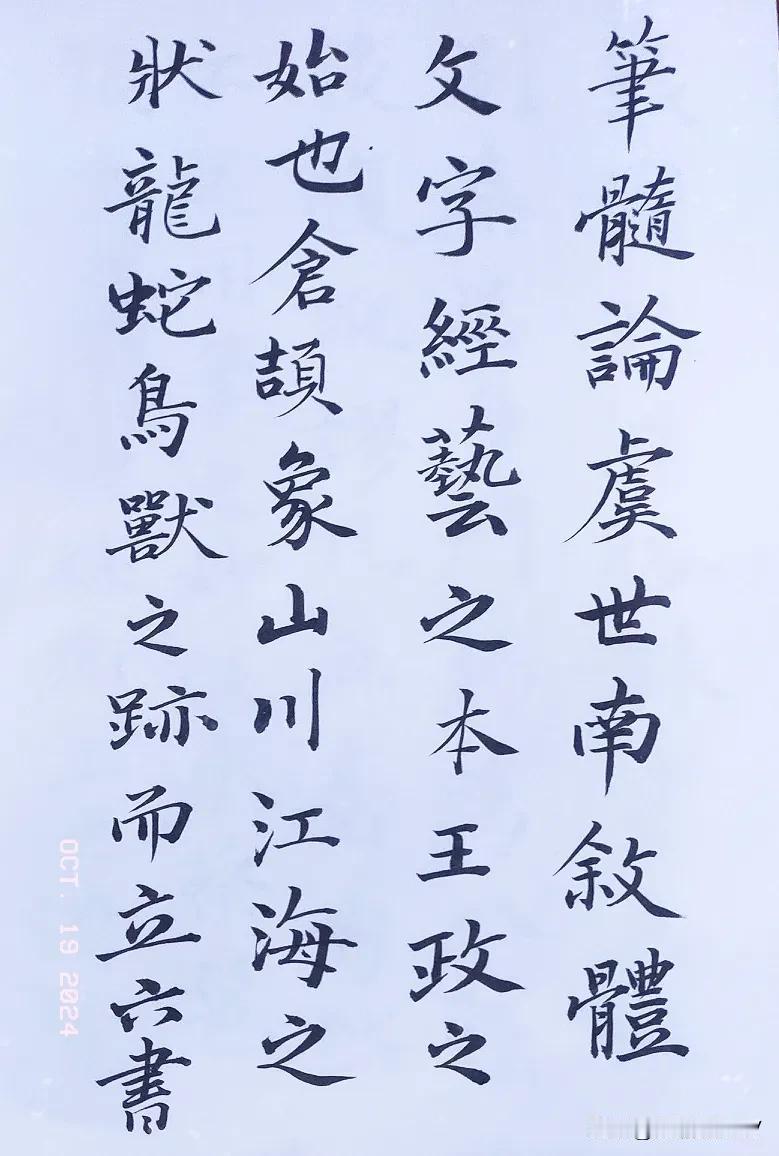 筆髓論虞世南敘體
文字經藝之本王政之
始也倉頡象山川江海之
狀龍蛇鳥獸之跡而立六書
OCT. 19 2024